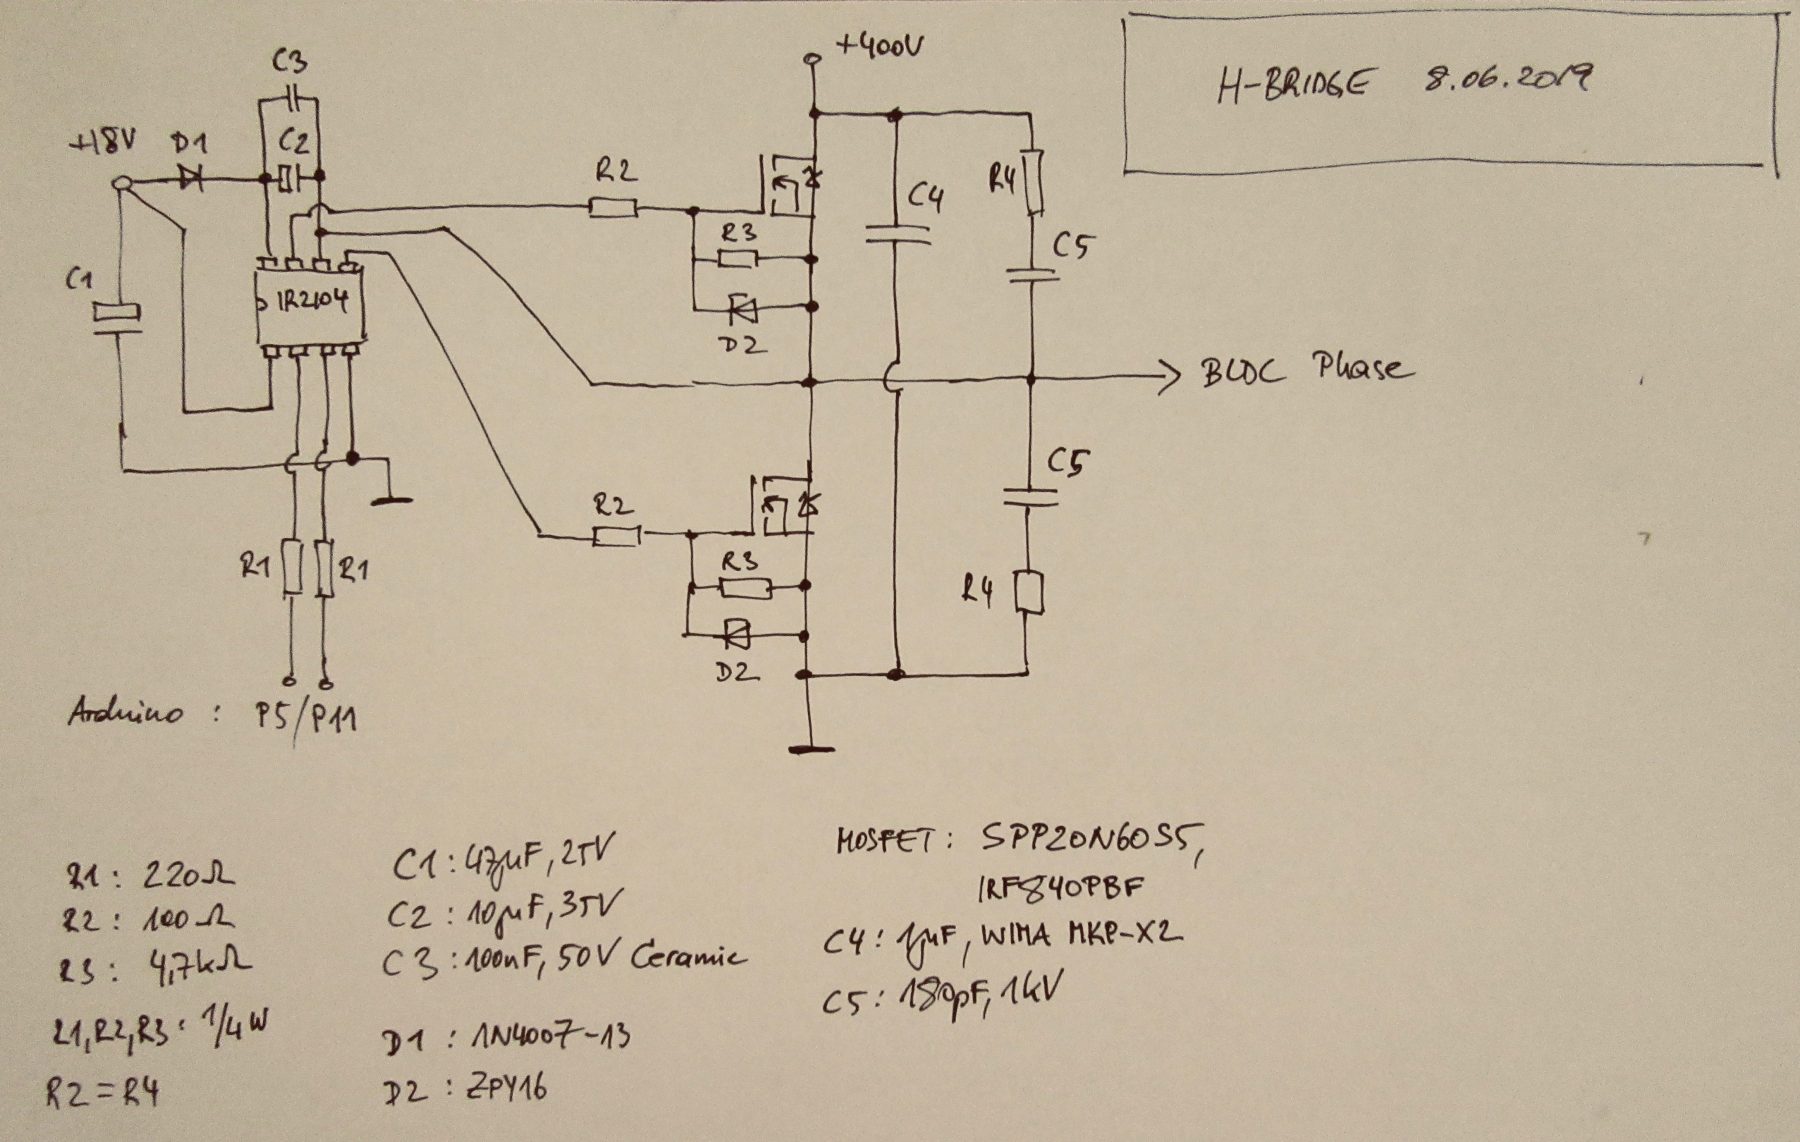 H-BRIDGE 8.06.2019
+400V
C3
+18V D1 C2
R2
R4
C4
R3
C5
C1
IR2104
D2
BLDC Phase
C5
R2
R1 R1
R3
R4
D2
Arduino : P5/P11
R1: 220Ω
R2: 100Ω
R3: 4,7kΩ
R1,R2,R3: 1/4W
R2=R4
C1: 47µF, 25V
C2: 10µF, 35V
C3: 100nF, 50V Ceramic
D1: 1N4007-13
D2: ZPY16
MOSFET: SPP20N60S5,
IRF840PBF
C4: 1µF, WIMA MKP-X2
C5: 180pF, 1kV